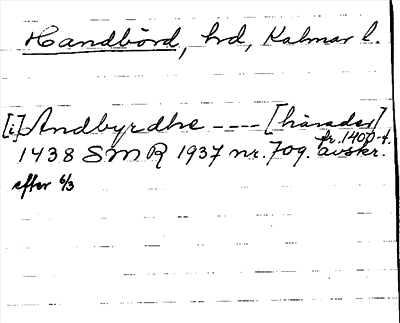 Handbörd, hd, Kalmar l.
[i] Andbyrdhe ---- [häradet]
1438 SMR 1937 nr. 709. avskr. fr. 1400-t.
efter 6/3